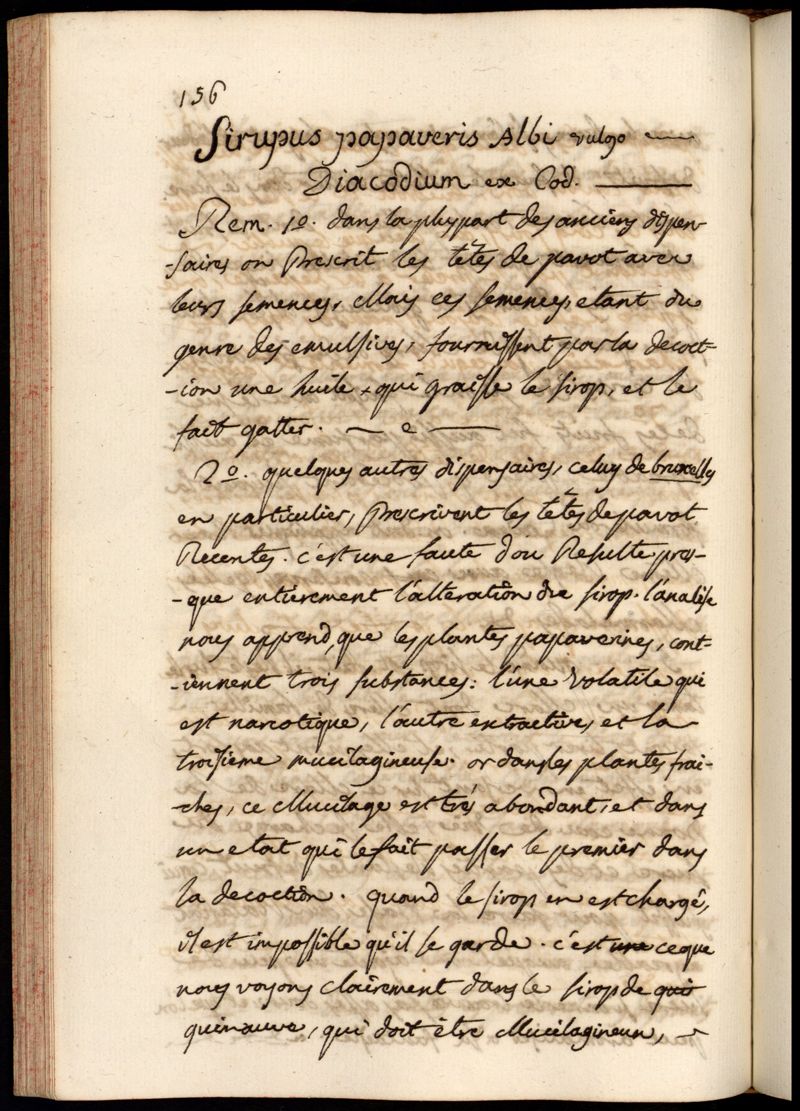 156
Sirupus papaveris Albi vulgo
Diacodium ex Cod.
Rem. 1o. dans la pluspart des anciens dispen-
-saires on Prescrit les têtes de pavot avec
leurs semences, Mais ces semences, etant du
genre des emulsives, fournissent par la decoct-
-ion une huile, qui graisse le sirop, et le
fait gatter.
2o. quelques autres dispensaires, celuy de bruxelles
en particulier, Prescrivent les têtes de pavot
Recentes. c'est une faute d'ou Resulte pres-
-que entièrement l'alteration du sirop. l'analise
nous apprend, que les plantes papaverines, cont-
-iennent trois substances: l'une Volatile qui
est narcotique, l'autre extractive, et la
troisieme mucilagineuse. or dans les plantes frai-
-ches, ce Mucilage est trés abondant, et dans
un etat qui le fait passer le premier dans
la decoction. quand le sirop en est chargé,
il est impossible qu'il se garde. c'est une ce que
nous voyons clairement dans le sirop de qui
guimauve, qui doit être Mucilagineux,